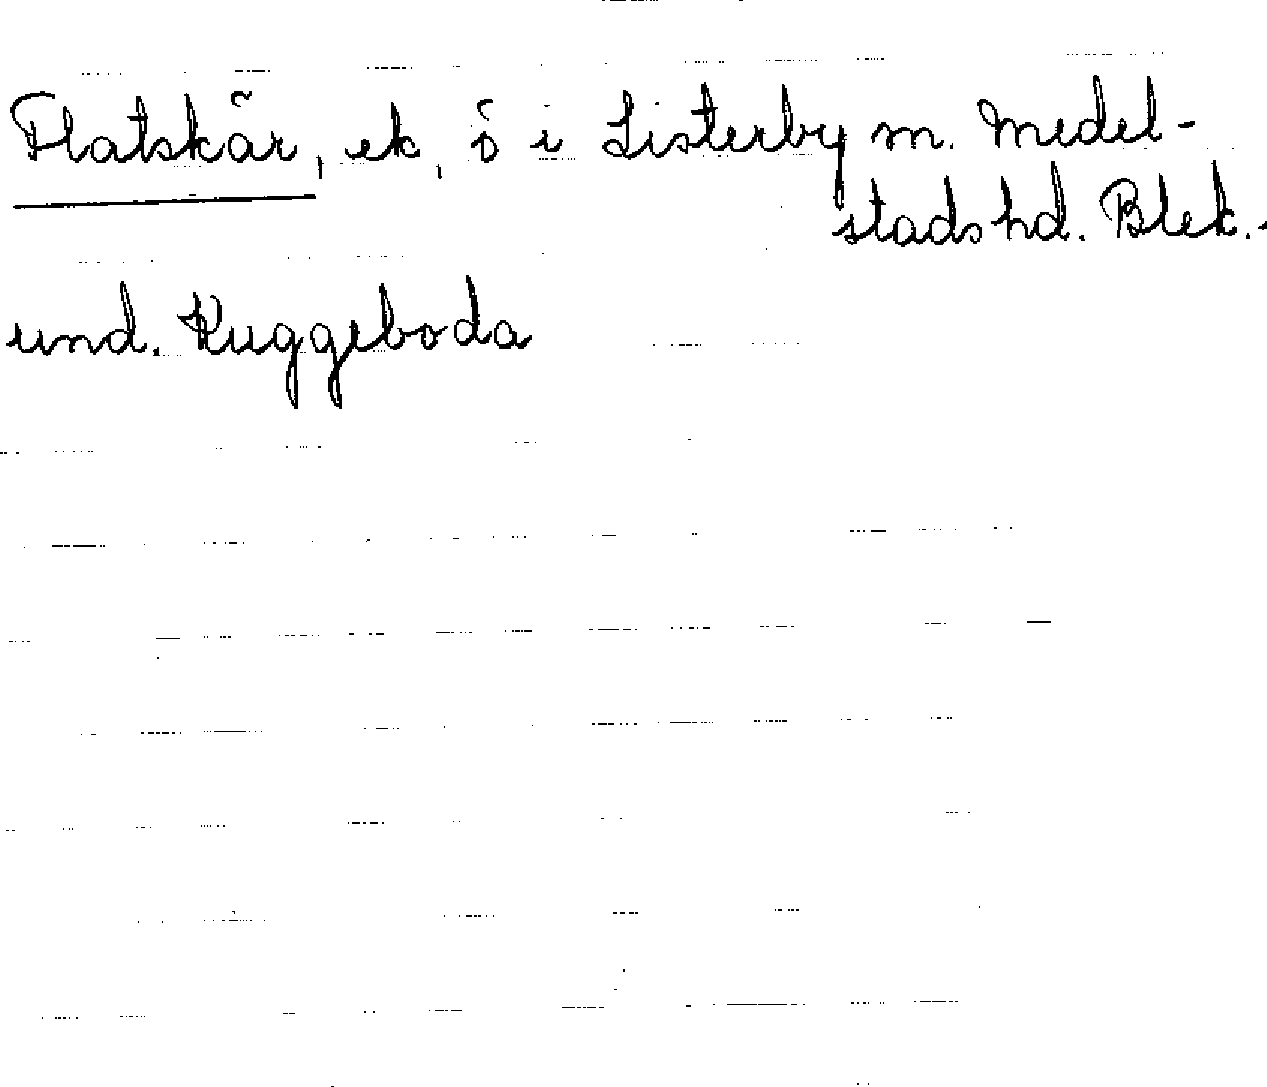 Flatskär, ek, ö i Listerby sn. Medel-
stads hd. Blek.
und. Kuggeboda